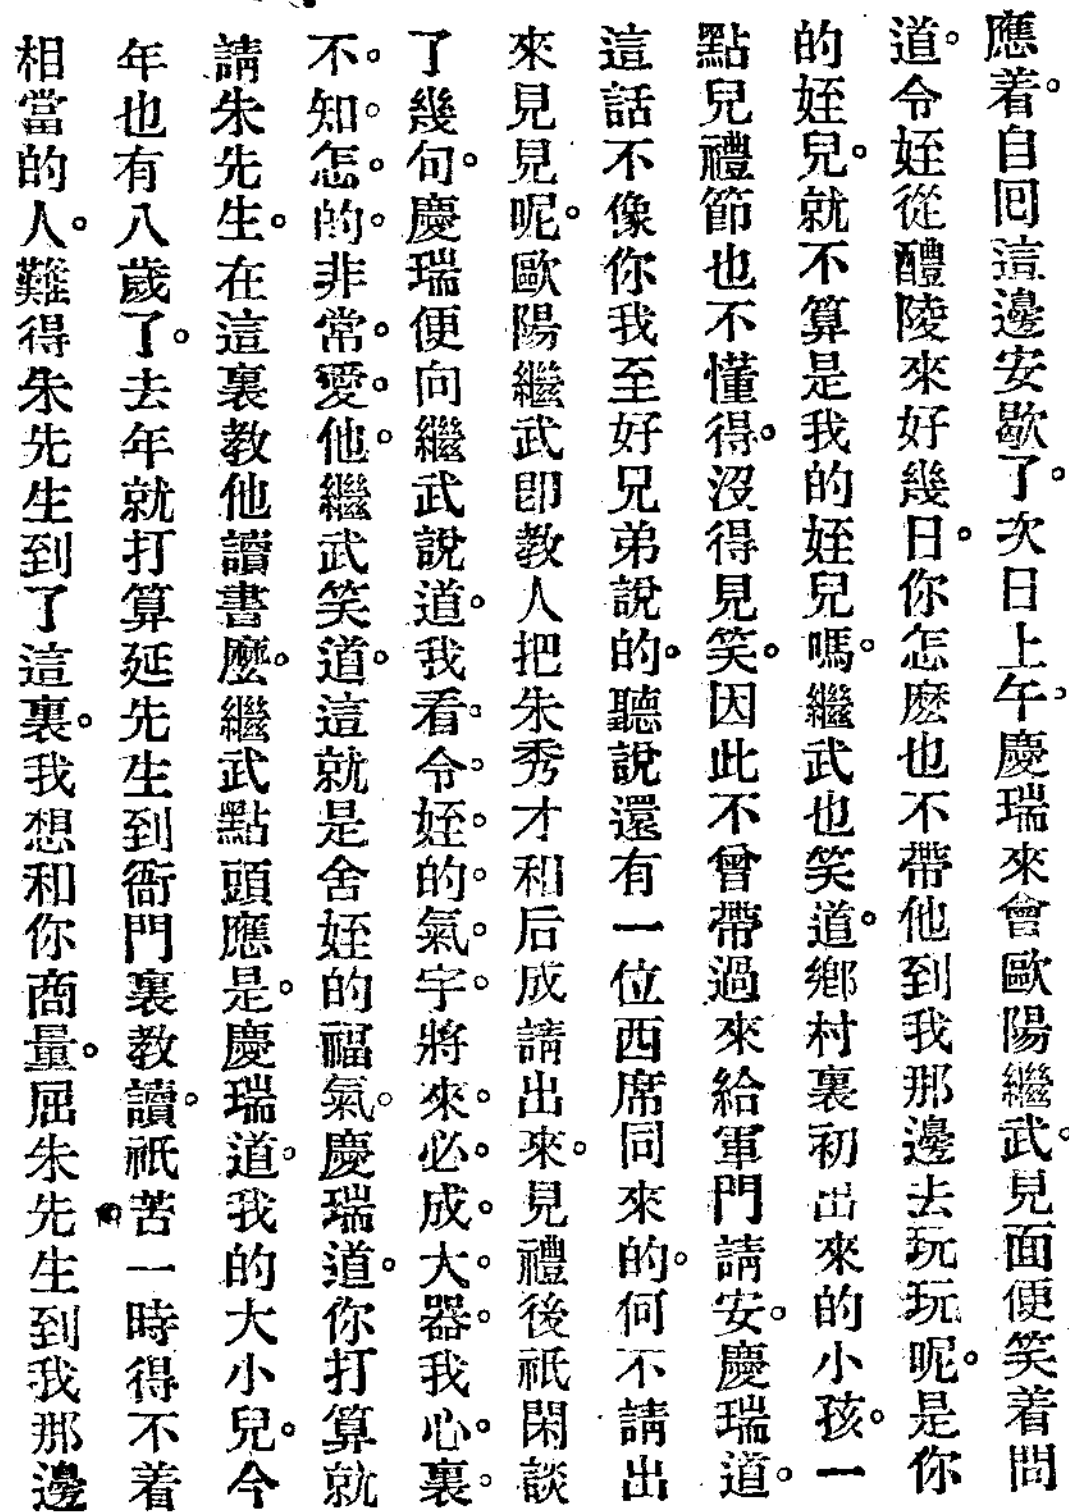 應着。自回這邊安歇了。次日上午。慶瑞來會歐陽繼武。見面便笑着問
道。令姪從醴陵來好幾日。你怎麽也不帶他到我那邊去玩玩呢。是你
的姪兒。就不算是我的姪兒嗎。繼武也笑道。鄉村裏初出來的小孩。一
點兒禮節也不懂得。沒得見笑。因此不曾帶過來給軍門請安。慶瑞道。
這話不像你我至好兄弟說的。聽說還有一位西席同來的。何不請出
來見見呢。歐陽繼武即教人把朱秀才和后成請出來。見禮後祇閑談
了幾句。慶瑞便向繼武說道。我看。令。姪。的。氣。宇。將來。必。成。大。器。我心。裏。
不。知。怎。的。非常。愛。他。繼武笑道。這就是舍姪的福氣。慶瑞道。你打算就
請朱先生。在這裏教他讀書麽。繼武點頭應是。慶瑞道。我的大小兒。今
年也有八歲了。去年就打算延先生到衙門裏教讀。祇苦一時得不着
相當的人。難得朱先生到了這裏。我想和你商量。屈朱先生到我那邊